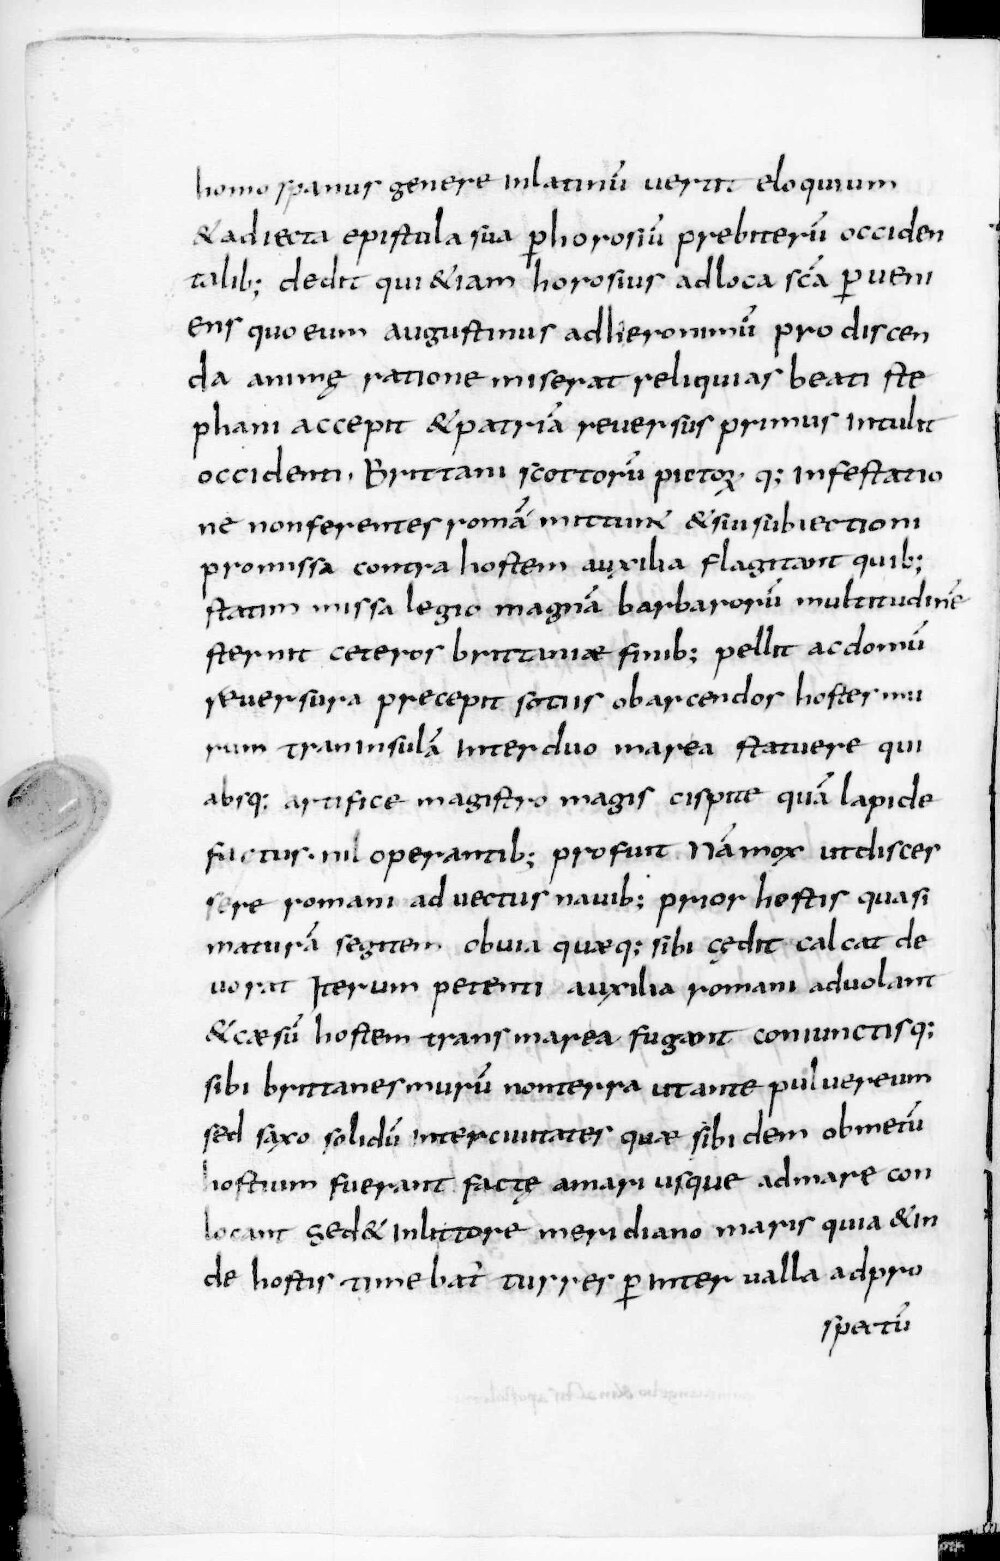 homo spanus genere inlatinū vertit eloquium
& adiecta epistula sua ꝑhorosiū prebiterū occiden
talib; dedit qui &iam horosius adloca scā ꝑveni
ens quo eum augustinus adhieronimū pro discen
da animę ratione miserat reliquias beati ste
phani accepit & patriā reversus primus intulit
occidenti. Brittani scottorū pictoꝝ q; infestatio
ne nonferentes romā mittunt & sui subiectioni
promissa contra hostem auxilia flagitant quib;
statim missa legio magnā barbarorū multitudinē
sternit ceteros brittaniae finib; pellit acdomū
reversura precepit sotiis obarcendos hostes mu
rum traninsulā inter duo marea statuere qui
absq; artifice magistro magis cispite quā lapide
factus. nil operantib; profuit. Nā mox utdisces
sere romani advectus navib; prior hostis quasi
maturā segitem obvia quaeq; sibi cędit calcat de
vorat Iterum petenti auxilia romani advolant
& caesū hostem trans marea fugant coniunctisq;
sibi brittanes murū nonterra utante pulvereum
sed saxo solidū inter civitates quae sibidem obmetū
hostium fuerant factę amari usque admare con
locant Sed & inlittore meridiano maris quia & in
de hostis timebat̄ turres ꝑ inter valla adpro
spectū